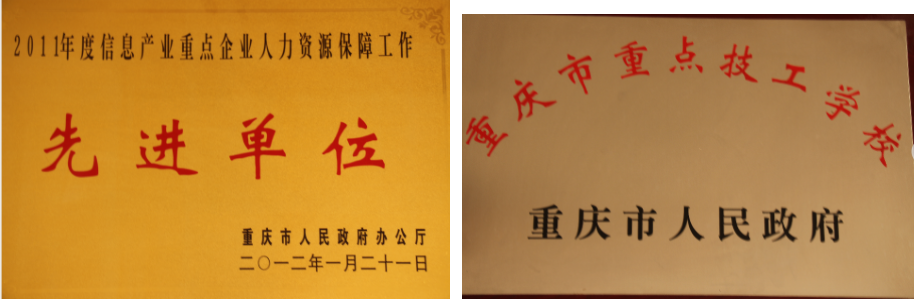 2011年度信息产业重点企业人力资源保障工作
先进单位
重庆市人民政府办公厅
二〇一二年一月二十一日
重庆市重点技工学校
重庆市人民政府